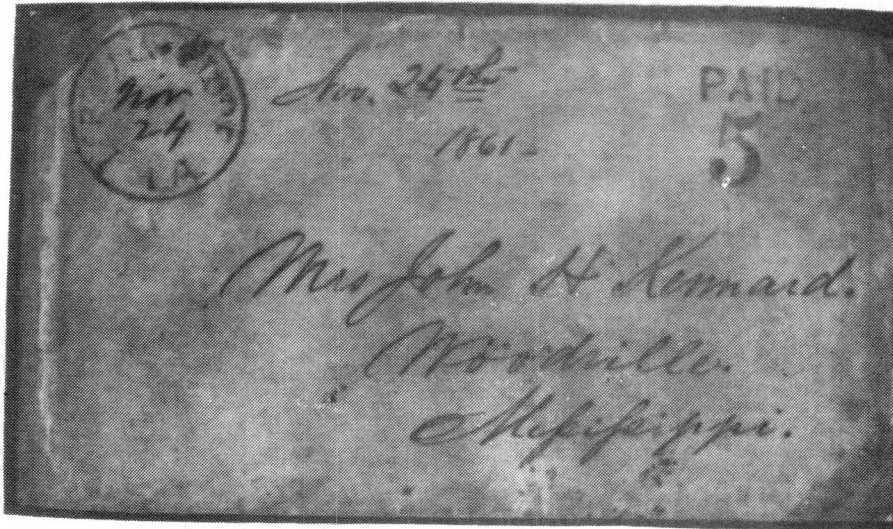 Nov
24
LA
Nov. 24th
1861-
PAID
5
Mrs John H Kennard.
Woodville.
Missisippi.